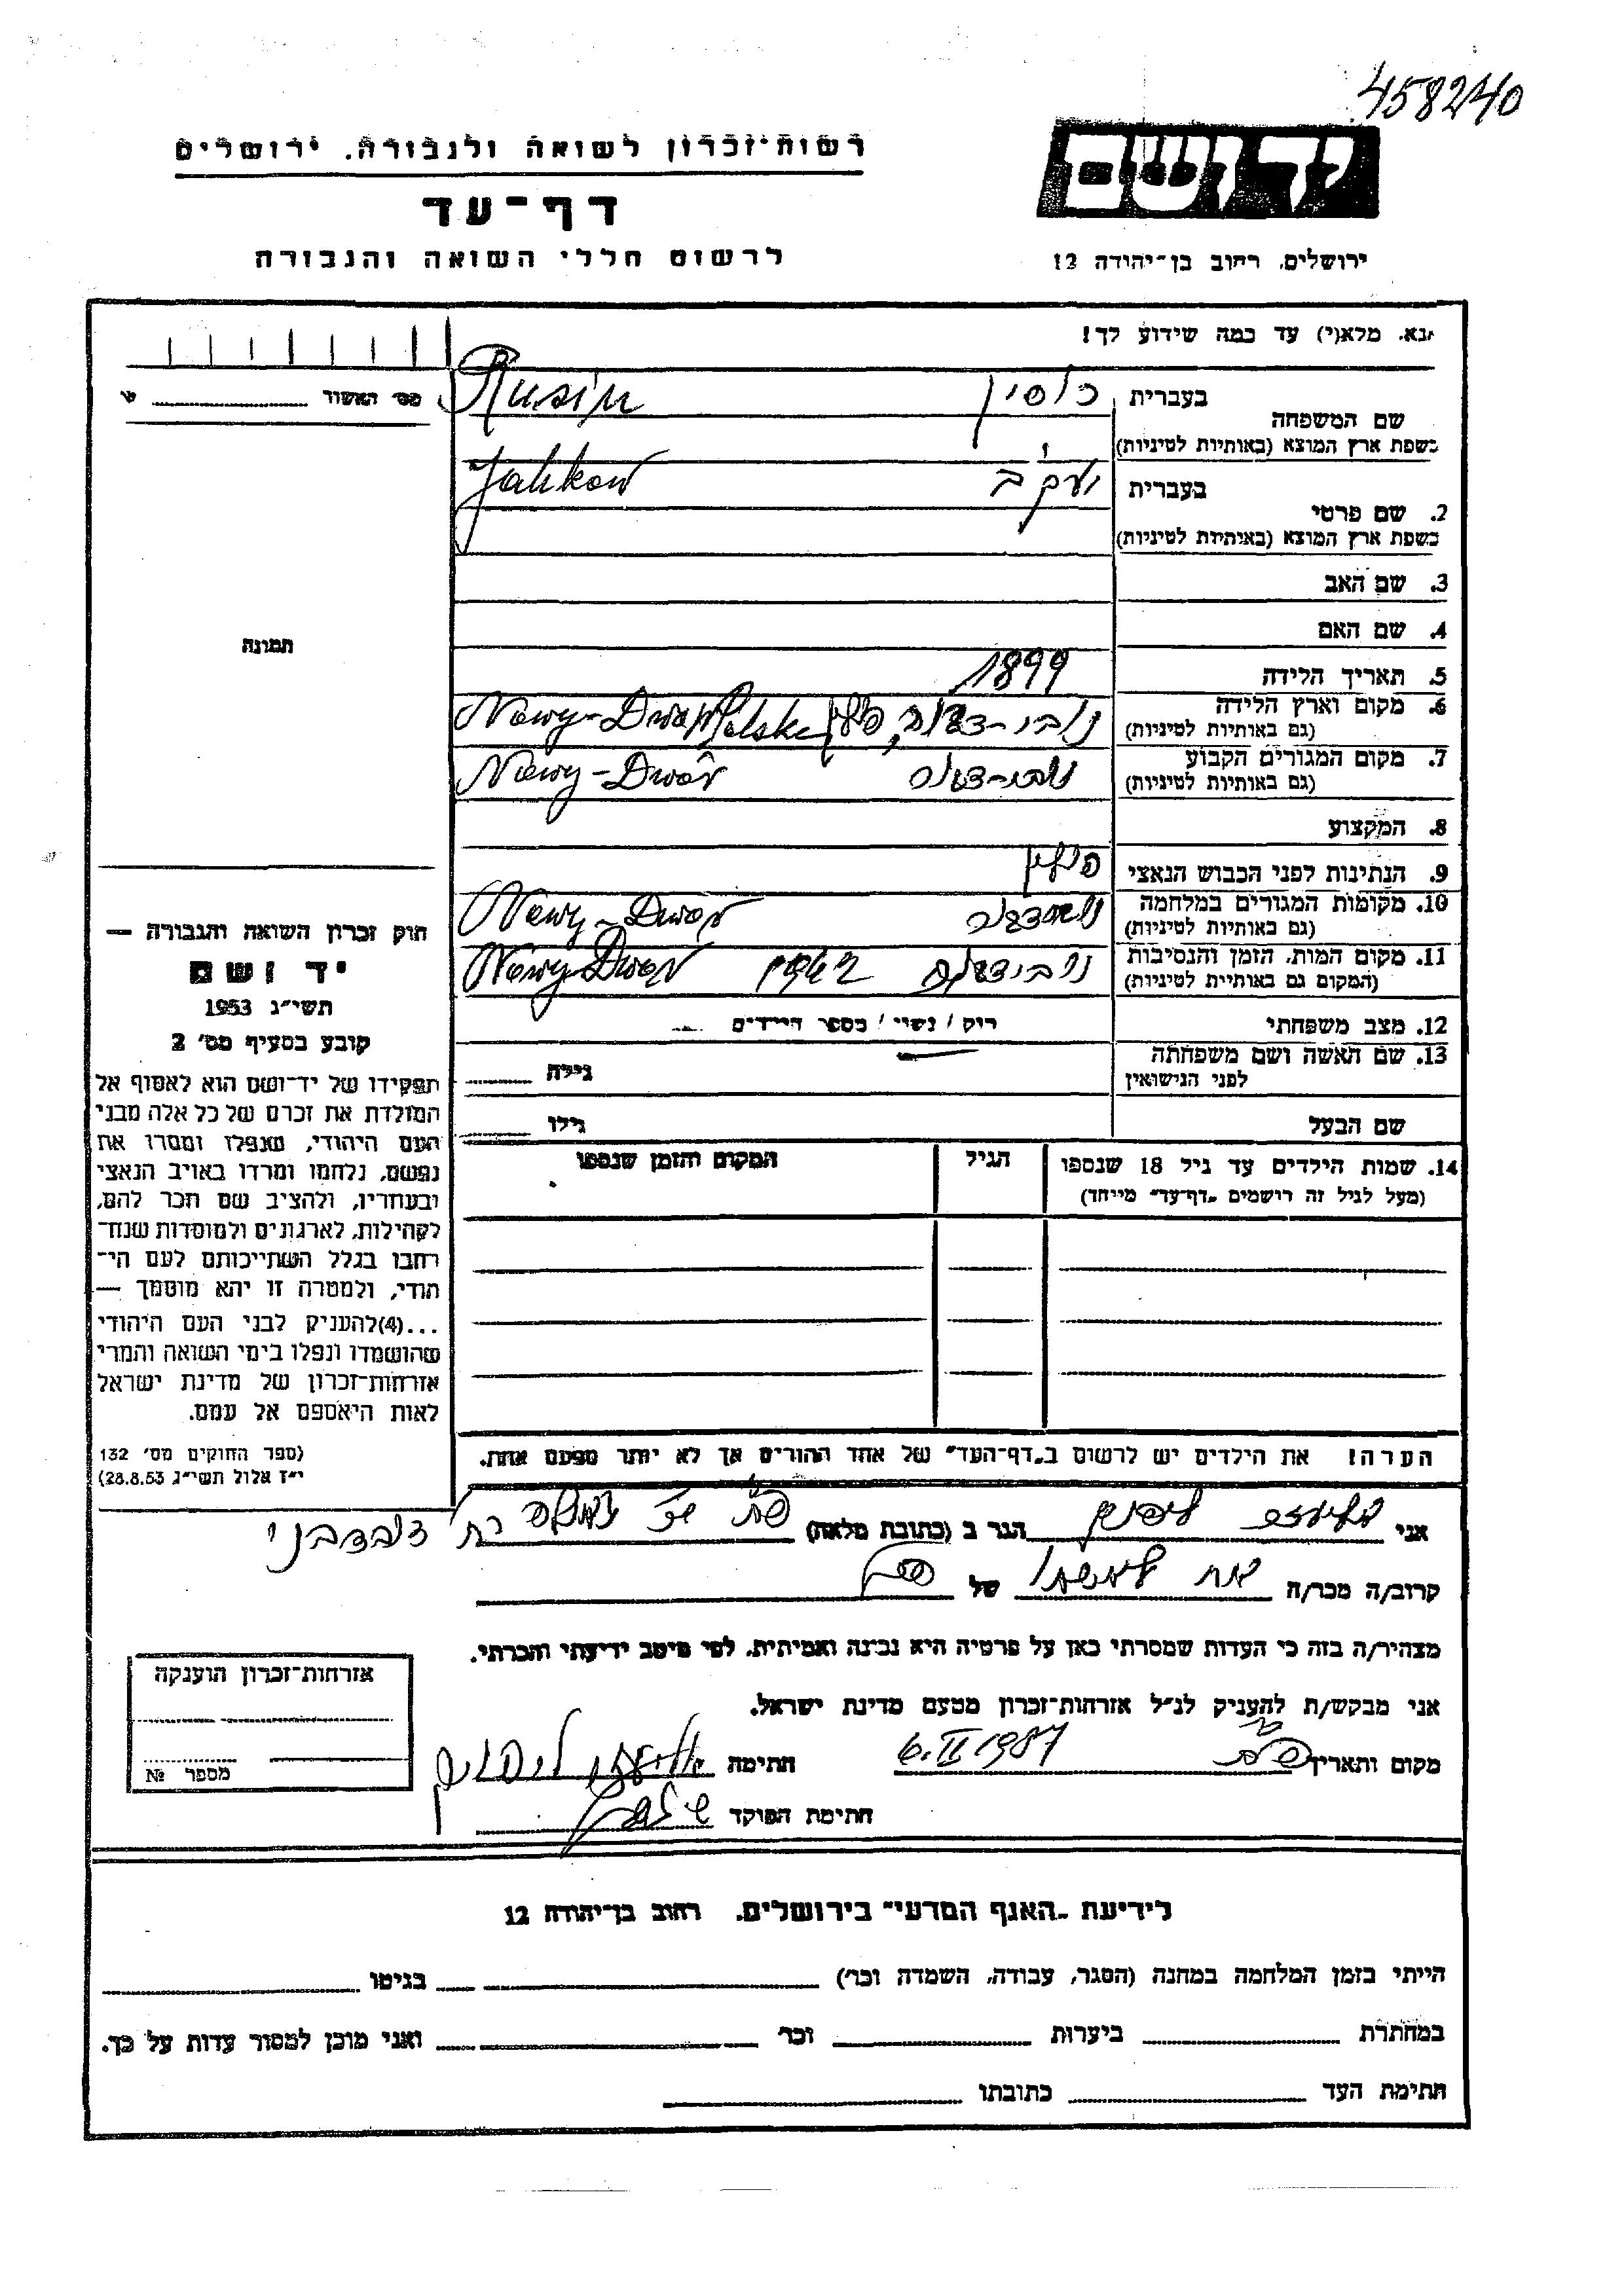 458240
רשות-זכרון לשואה ולגבורה. ירושלים
דף-עד
לרשום חללי השואה והגבורה
יד ושם
ירושלים, רחוב בן-יהודה 12
נא. מלא(י) עד כמה שידוע לך!
שם המשפחה
בעברית רוסין
בשפת ארץ המוצא (באותיות לטיניות) Rusin
2. שם פרטי
בעברית יעקב
בשפת ארץ המוצא (באותיות לטיניות) Jakkow
3. שם האב
4. שם האם
5. תאריך הלידה 1899
6. מקום וארץ הלידה (גם באותיות לטיניות) נובי-דבור, פולין Nowy-Dwor Polska
7. מקום המגורים הקבוע (גם באותיות לטיניות) נובי-דבור Nowy-Dwór
8. המקצוע
9. הנתינות לפני הכבוש הנאצי פולין
10. מקומות המגורים במלחמה (גם באותיות לטיניות) נובי-דבור Nowy-Dwor
11. מקום המות, הזמן והנסיבות (המקום גם באותיות לטיניות) נובי-דבור Nowy-Dwor
12. מצב משפחתי רוק / נשוי / מספר הילדים
13. שם האשה ושם משפחתה לפני הנישואין גילה
שם הבעל גילו
14. שמות הילדים עד גיל 18 שנספו הגיל המקום והזמן שנספו
(מעל לגיל זה רושמים "דף-עד" מייחד)
הערה! את הילדים יש לרשום ב"דף-העד" של אחד ההורים אך לא יותר מפעם אחת.
מס' האשור
תמונה
חוק זכרון השואה והגבורה —
יד ושם
תשי"ג 1953
קובע בסעיף מס' 2
תפקידו של יד-ושם הוא לאסוף אל
המולדת את זכרם של כל אלה מבני
העם היהודי, שנפלו ומסרו את
נפשם, נלחמו ומרדו באויב הנאצי
ובעוזריו, ולהציב שם וזכר להם,
לקהילות, לארגונים ולמוסדות שנח-
רבו בגלל השתייכותם לעם הי-
הודי, ולמטרה זו יהא מוסמך —
...(4)להעניק לבני העם היהודי
שהושמדו ונפלו בימי השואה והמרי
אזרחות-זכרון של מדינת ישראל
לאות היאספם אל עמם.
(ספר החוקים מס' 132
י"ז אלול תשי"ג 28.8.53)
אני אליעזר ליפמן הגר ב (כתובת מלאה)
קרוב/ה מכר/ה של
מצהיר/ה בזה כי העדות שמסרתי כאן על פרטיה היא נכונה ואמיתית. לפי מיטב ידיעתי והכרתי.
אני מבקש/ת להעניק לנ"ל אזרחות-זכרון מטעם מדינת ישראל.
מקום ותאריך 6.II 1987 חתימה
חתימת הפוקד
אזרחות-זכרון הוענקה
מספר №
לידיעת "האגף המדעי" בירושלים. רחוב בן-יהודה 12
הייתי בזמן המלחמה במחנה (הסגר, עבודה, השמדה וכר') בגיטו
במחתרת ביערות וכר' ואני מוכן למסור עדות על כך.
חתימת העד כתובתו